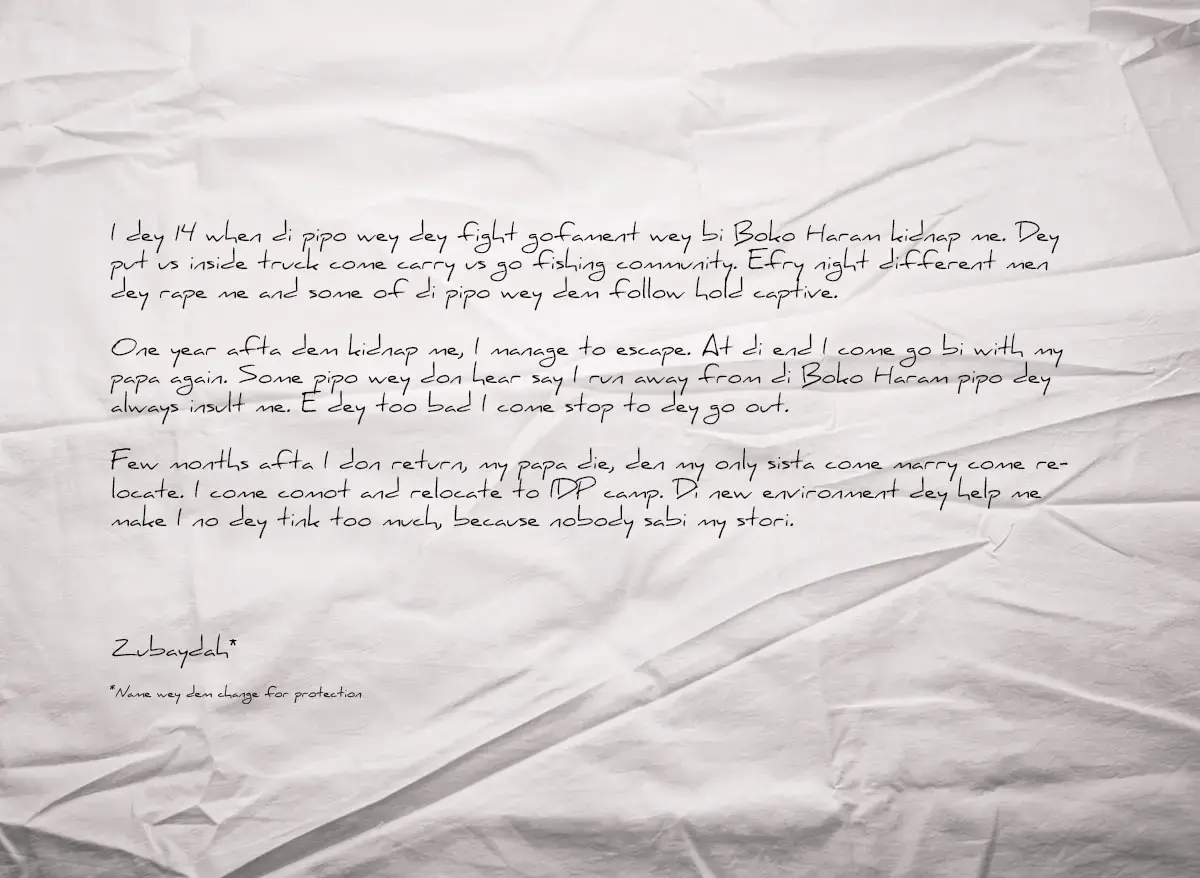 I dey 14 when di pipo wey dey fight gofament wey bi Boko Haram kidnap me. Dey
put us inside truck come carry us go fishing community. Efry night different men
dey rape me and some of di pipo wey dem follow hold captive.
One year afta dem kidnap me, I manage to escape. At di end I come go bi with my
papa again. Some pipo wey don hear say I run away from di Boko Haram pipo dey
always insult me. E dey too bad I come stop to dey go out.
Few months afta I don return, my papa die, den my only sista come marry come re-
locate. I come comot and relocate to IDP camp. Di new environment dey help me
make I no dey tink too much, because nobody sabi my stori.
Zubaydah*
*Name wey dem change for protection